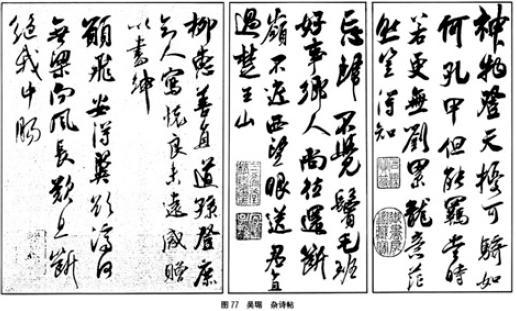 神物登天擾可騎如
何孔甲但能羈當時
若更無劉累龍意茫
然豈得知
忘歸不覺鬢毛班
好事鄉人尚往還斷
嶺不遮西望眼送君直
過楚王山
柳惠善直道孫登庶
知人寫懷良未遠感贈
以書紳
願飛安得翼欲濟河
無梁向風長歎息斷
絕我中腸
图77 吴琚 杂诗帖